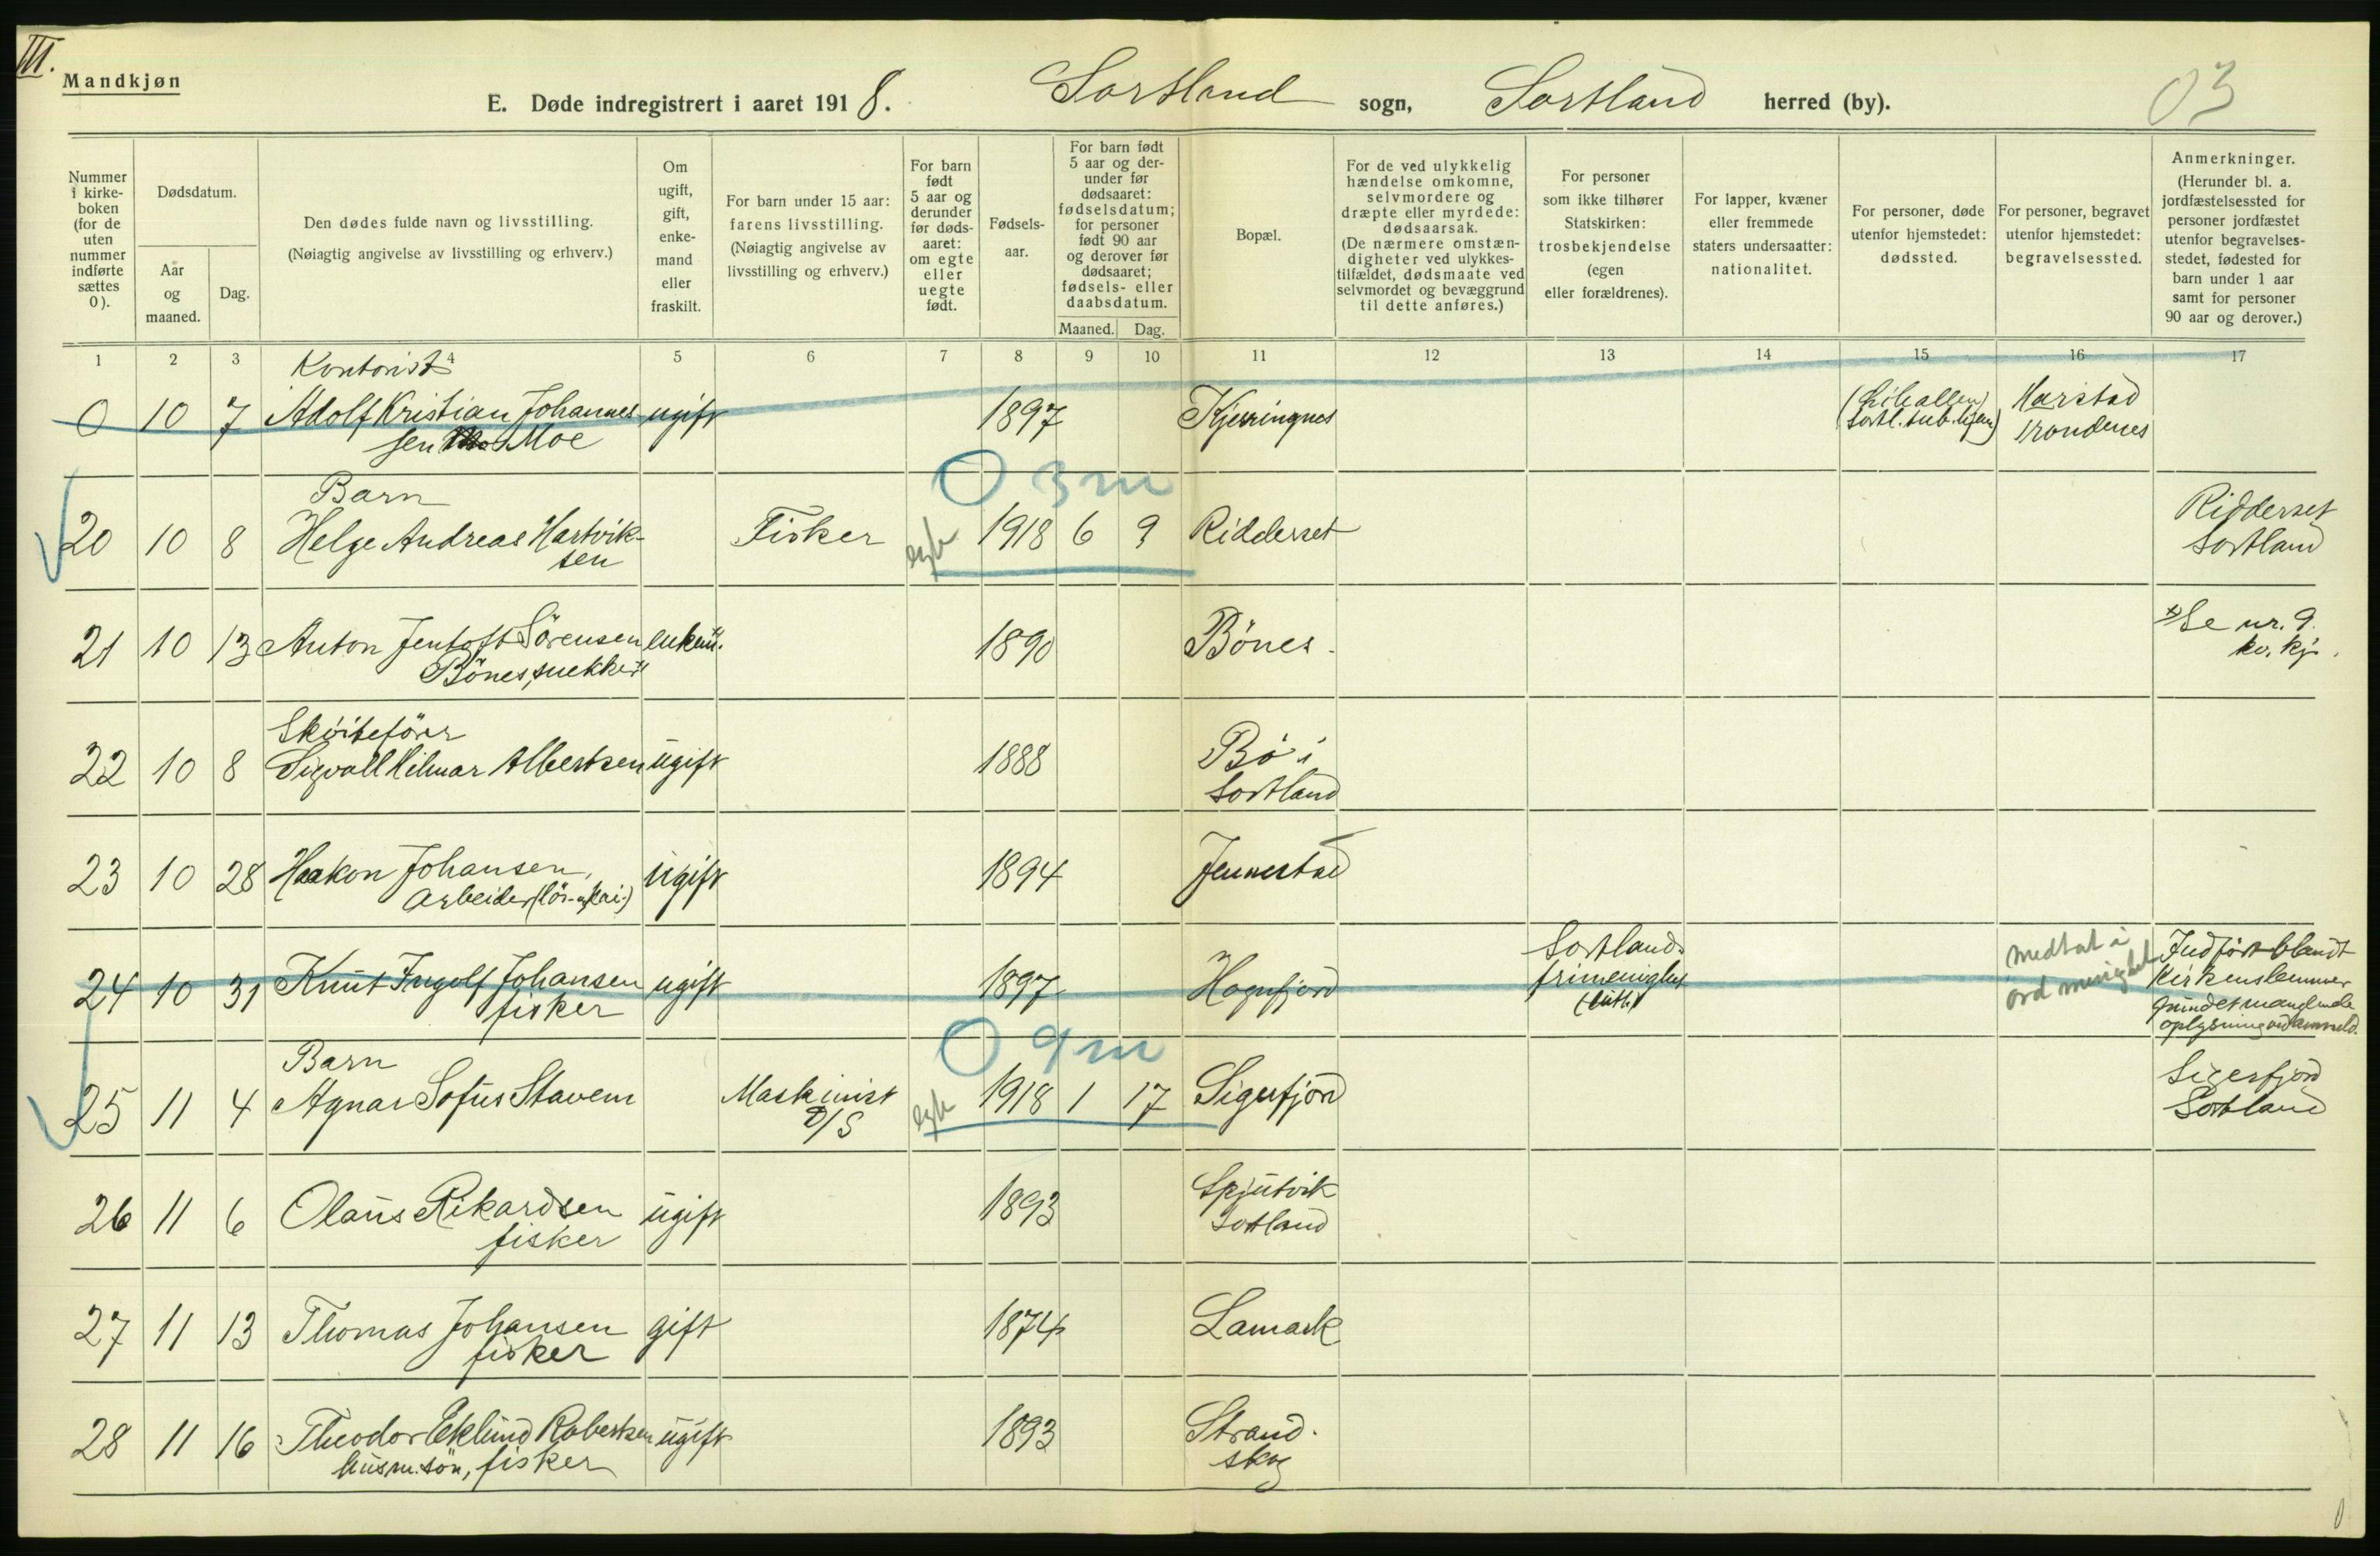 III.
Mandkjøn
E. Døde indregistrert i aaret 1918. Sortland sogn, Sortland herred (by).
03
Nummer i kirke-boken (for de uten nummer indførte sættes 0).
Dødsdatum.
Aar og maaned.
Dag.
Den dødes fulde navn og livsstilling.
(Nøiagtig angivelse av livsstilling og erhverv.)
Om ugift, gift, enke-mand eller fraskilt.
For barn under 15 aar: farens livsstilling.
(Nøiagtig angivelse av livsstilling og erhverv.)
For barn født 5 aar og derunder før døds-aaret: om egte eller uegte født.
Fødsels-aar.
For barn født 5 aar og der-under før dødsaaret: fødselsdatum; for personer født 90 aar og derover før dødsaaret; fødsels- eller daabsdatum.
Maaned. Dag.
Bopæl.
For de ved ulykkelig hændelse omkomne, selvmordere og dræpte eller myrdede: dødsaarsak. (De nærmere omstæn-digheter ved ulykkes-tilfældet, dødsmaate ved selvmordet og bevæggrund til dette anføres.)
For personer som ikke tilhører Statskirken: trosbekjendelse (egen eller forældrenes).
For lapper, kvæner eller fremmede staters undersaatter: nationalitet.
For personer, døde utenfor hjemstedet: dødssted.
For personer, begravet utenfor hjemstedet: begravelsessted.
Anmerkninger. (Herunder bl. a. jordfæstelsessted for personer jordfæstet utenfor begravelses-stedet, fødested for barn under 1 aar samt for personer 90 aar og derover.)
1 2 3 4 5 6 7 8 9 10 11 12 13 14 15 16 17
Kontorist
0 10 7 Adolf Kristian Johannes- ugift 1897 Kjerringnes Harstad
sen Moe Trondenes
O 3 m
Barn
20 10 8 Helge Andreas Hartvik- Fisker egte 1918 6 9 Ridderset Ridderset
sen Sortland
21 10 13 Anton Jentoft Sörensen enkem. 1890 Bönes. Se nr. 9.
Bönes, snekker kv. kj.
Skøiteförer
22 10 8 Sigvall Hilmar Albertsen ugift 1888 Bö i
Sortland
23 10 28 Haakon Johansen, ugift 1894 Jennestad
Arbeider
24 10 31 Knut Ingolf Johansen ugift 1897 Hognfjord Sortlands frimenighet (luth.) medtat i ord menighet Indført blandt
fisker Kirkens lemmer
grundet manglende
oplysning ved anmeld.
O 9 m
Barn
25 11 4 Agnar Sofus Stavem Maskinist egte 1918 1 17 Sigerfjord Sigerfjord
D/S Sortland
26 11 6 Olaus Rikardsen ugift 1893 Spjutvik
fisker Sortland
27 11 13 Thomas Johansen gift 1874 Lamark
fisker
28 11 16 Theodor Eklund Robertsen ugift 1893 Strand-
husm. sön, fisker skog